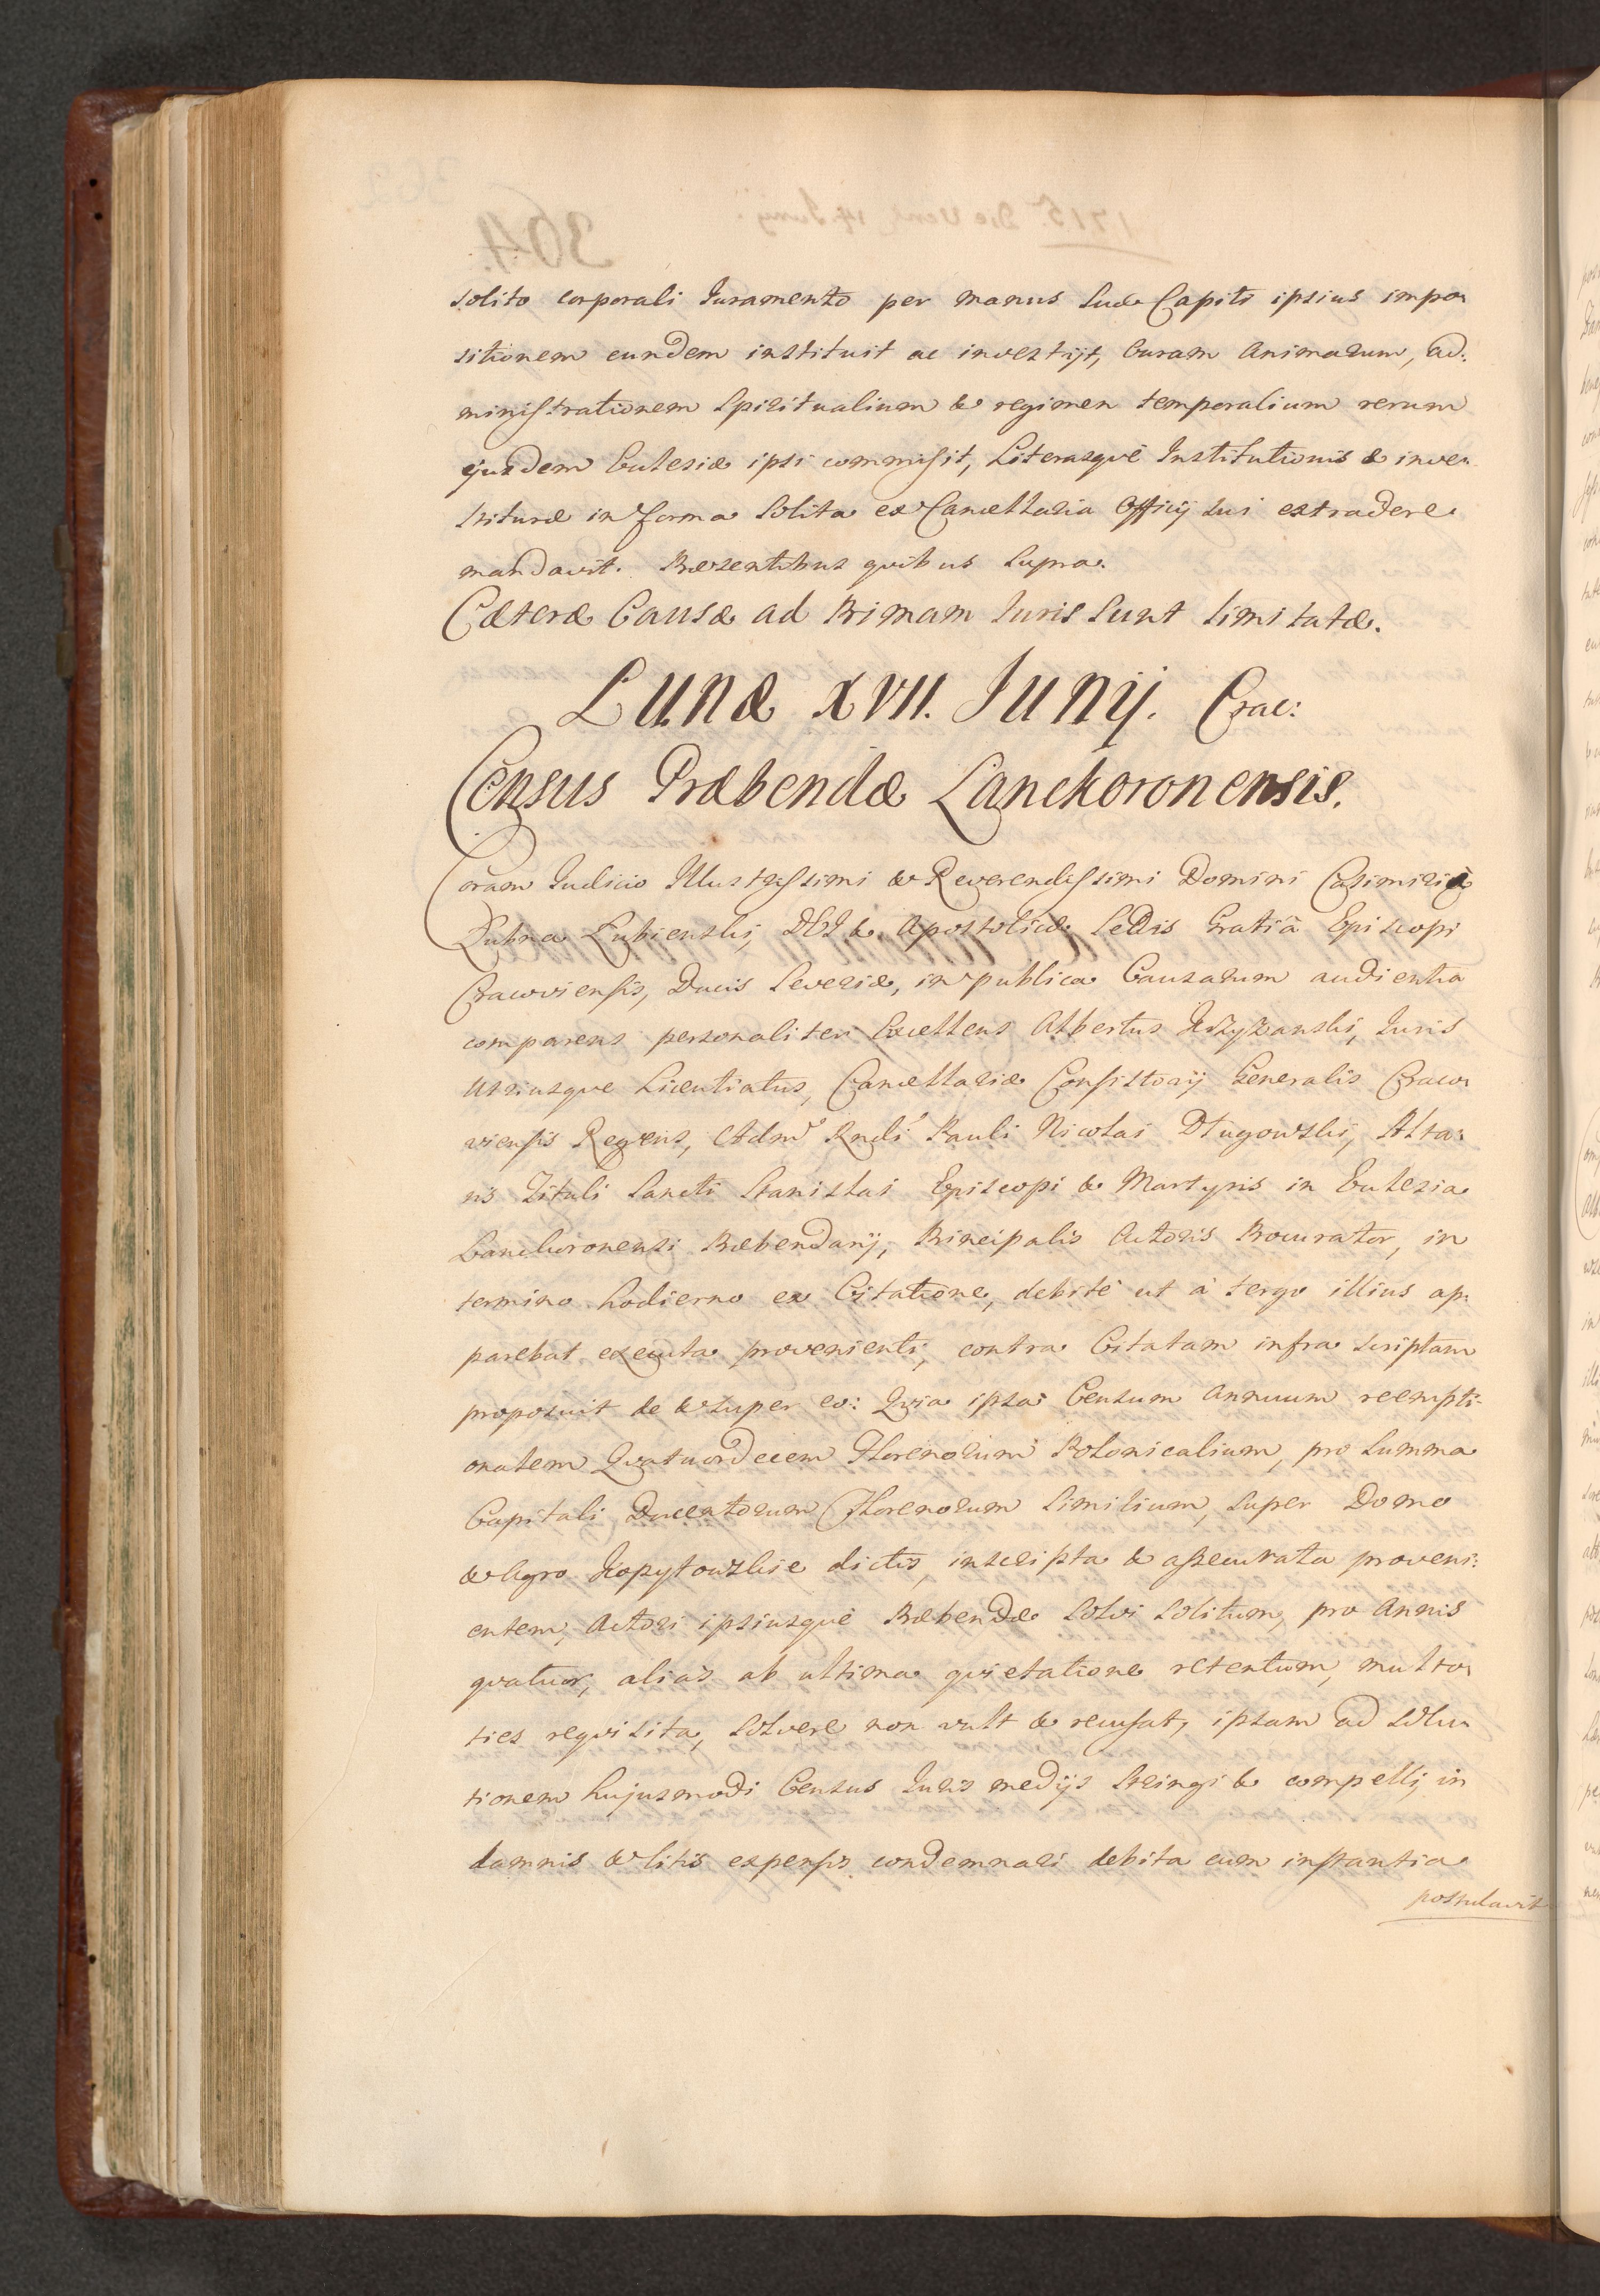 solito corporali Juramento per manus suæ Capiti ipsius impo:
sitionem eundem instituit ac investijt, Curam Animarum, ad:
ministrationem Spiritualium & regimen temporalium rerum
ejusdem Eccleziæ ipsi commisit, Literasquè Institutionis & inve:
stituræ in forma solita ex Cancellaria Officij sui extradere
mandavit. Præsentibus quibus supra.
Cæteræ Causæ ad Primam Iuris sunt limitatæ.
Lunæ XVII. Junij. Crac:
Census Præbendæ Lanckoronensis.
Coram Iudicio Illustrissimi & Reverendissimi Domini Casimiri à
Lubna Lubienski, DEI & Apostolicæ Sedis Gratiâ Episcopi
Cracoviensis, Ducis Severiæ, in publica Causarum audientia
comparens personaliter Excellens Albertus Krzyżanski, Juris
Utriusque Licentiatus, Cancellariæ Consistorij Generalis Craco:
viensis Regens, Admd Rndi Pauli Nicolai Długowski, Alta:
ris Tituli Sancti Stanislai Episcopi & Martyris in Ecclezia
Lanckoronensi Præbendarij, Principalis Actoris Procurator, in
termino hodierno ex Citatione, debitè ut à tergo illius ap:
parebat executa provenienti, contra Citatam infra scriptam
proposuit de & super eo: Qvia ipsa Censum Annuum reempti:
onalem Qvatuordecem Florenorum Polonicalium, pro Summa
Capitali Ducentorum Florenorum similium, super Domo
& Agro Kopytowskie dictis, inscripta & assecurata proveni:
entem, Actori ipsiusquè Præbendæ solvi solitum, pro Annis
qvatuor, aliàs ab ultima qvietatione retentum, multo:
ties reqvisita, solvere non vult & recusat, ipsam ad solu:
tionem hujusmodi Census Juris medijs stringi & compelli, in
damnis & litis expensis condemnari debita cum instantia
postulavit